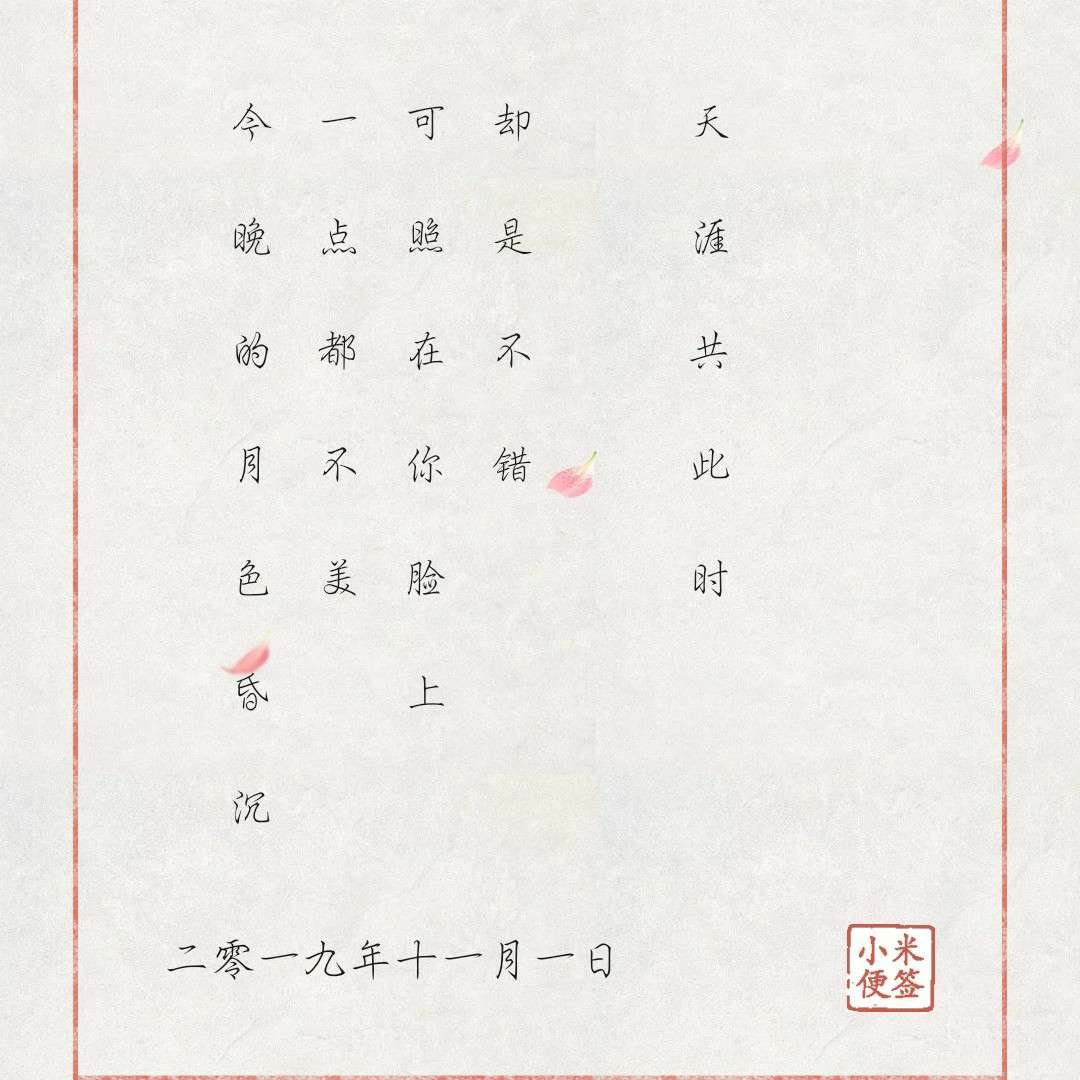 今晚的月色昏沉
一点都不美
可照在你脸上
却是不错
天涯共此时
二零一九年十一月一日
小米
便签